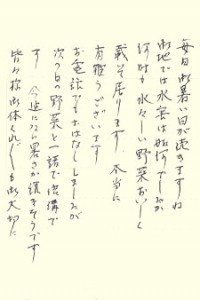 毎日お暑い日が続きますね
御地では水害は如何でしたか
何時も水々しい野菜おいしく
戴いて居ります 本当に
有難うございます
お電話でもおはなししましたが
次の日の野菜と一諸で結構で
す 今週になり暑さが続きそうです
皆々様お体くれぐれもお大切に